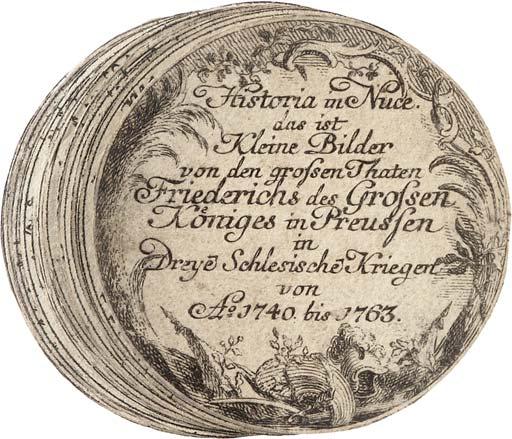 Historia in Nuce.
das ist
Kleine Bilder
von den grossen Thaten
Friederichs des Grossen
Königes in Preussen
in
Dreyē Schlesischē Kriegen
von
Aº. 1740. bis 1763.